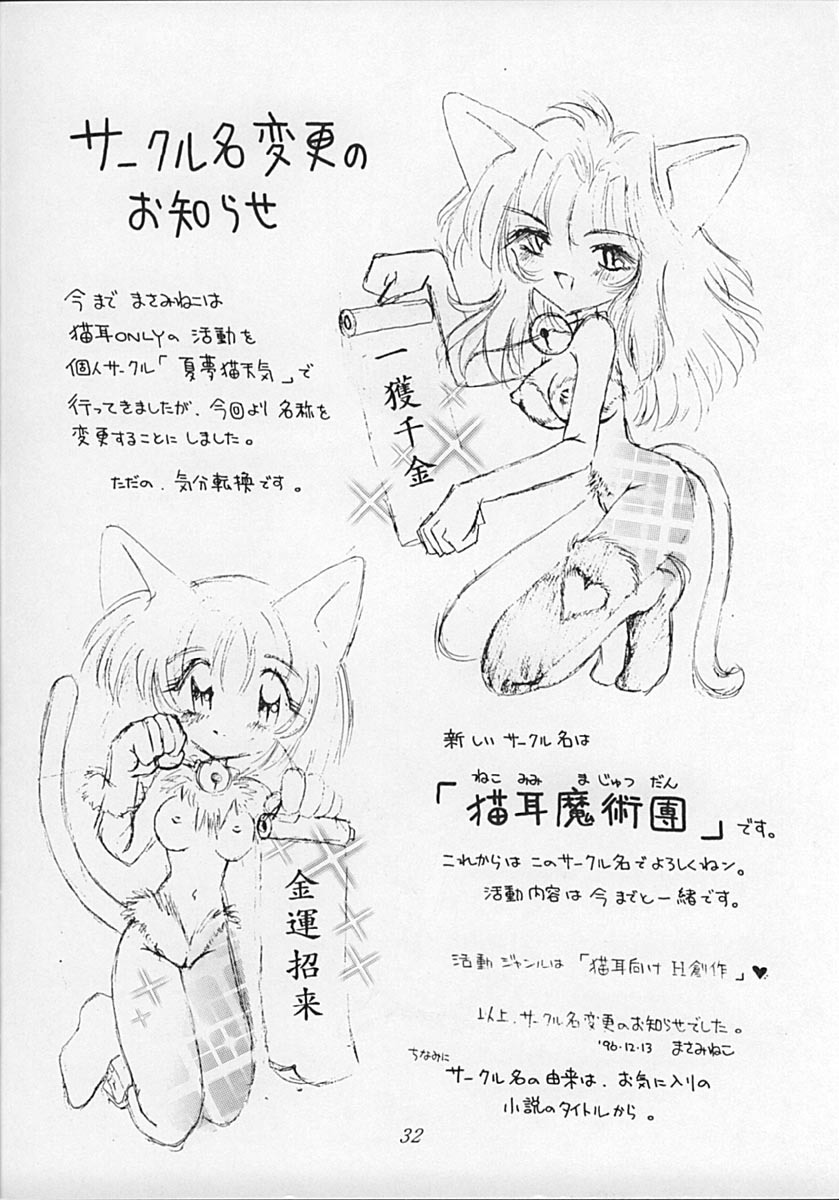 サークル名変更の
お知らせ
今まで まさみねこは
猫耳ONLYの 活動を
個人サークル「夏夢猫天気」で
行ってきましたが、今回より 名称を
変更することにしました。
ただの、気分転換です。
一獲千金
金運招来
新しい サークル名は
ねこ みみ ま じゅつ だん
「猫耳魔術團」です。
これからは このサークル名で よろしくねン。
活動内容は 今までと一緒です。
活動 ジャンルは 「猫耳向け H創作」♥
以上、サークル名変更のお知らせでした。
'96.12.13 まさみねこ
ちなみに
サークル名の由来は、お気に入りの
小説のタイトルから。
32